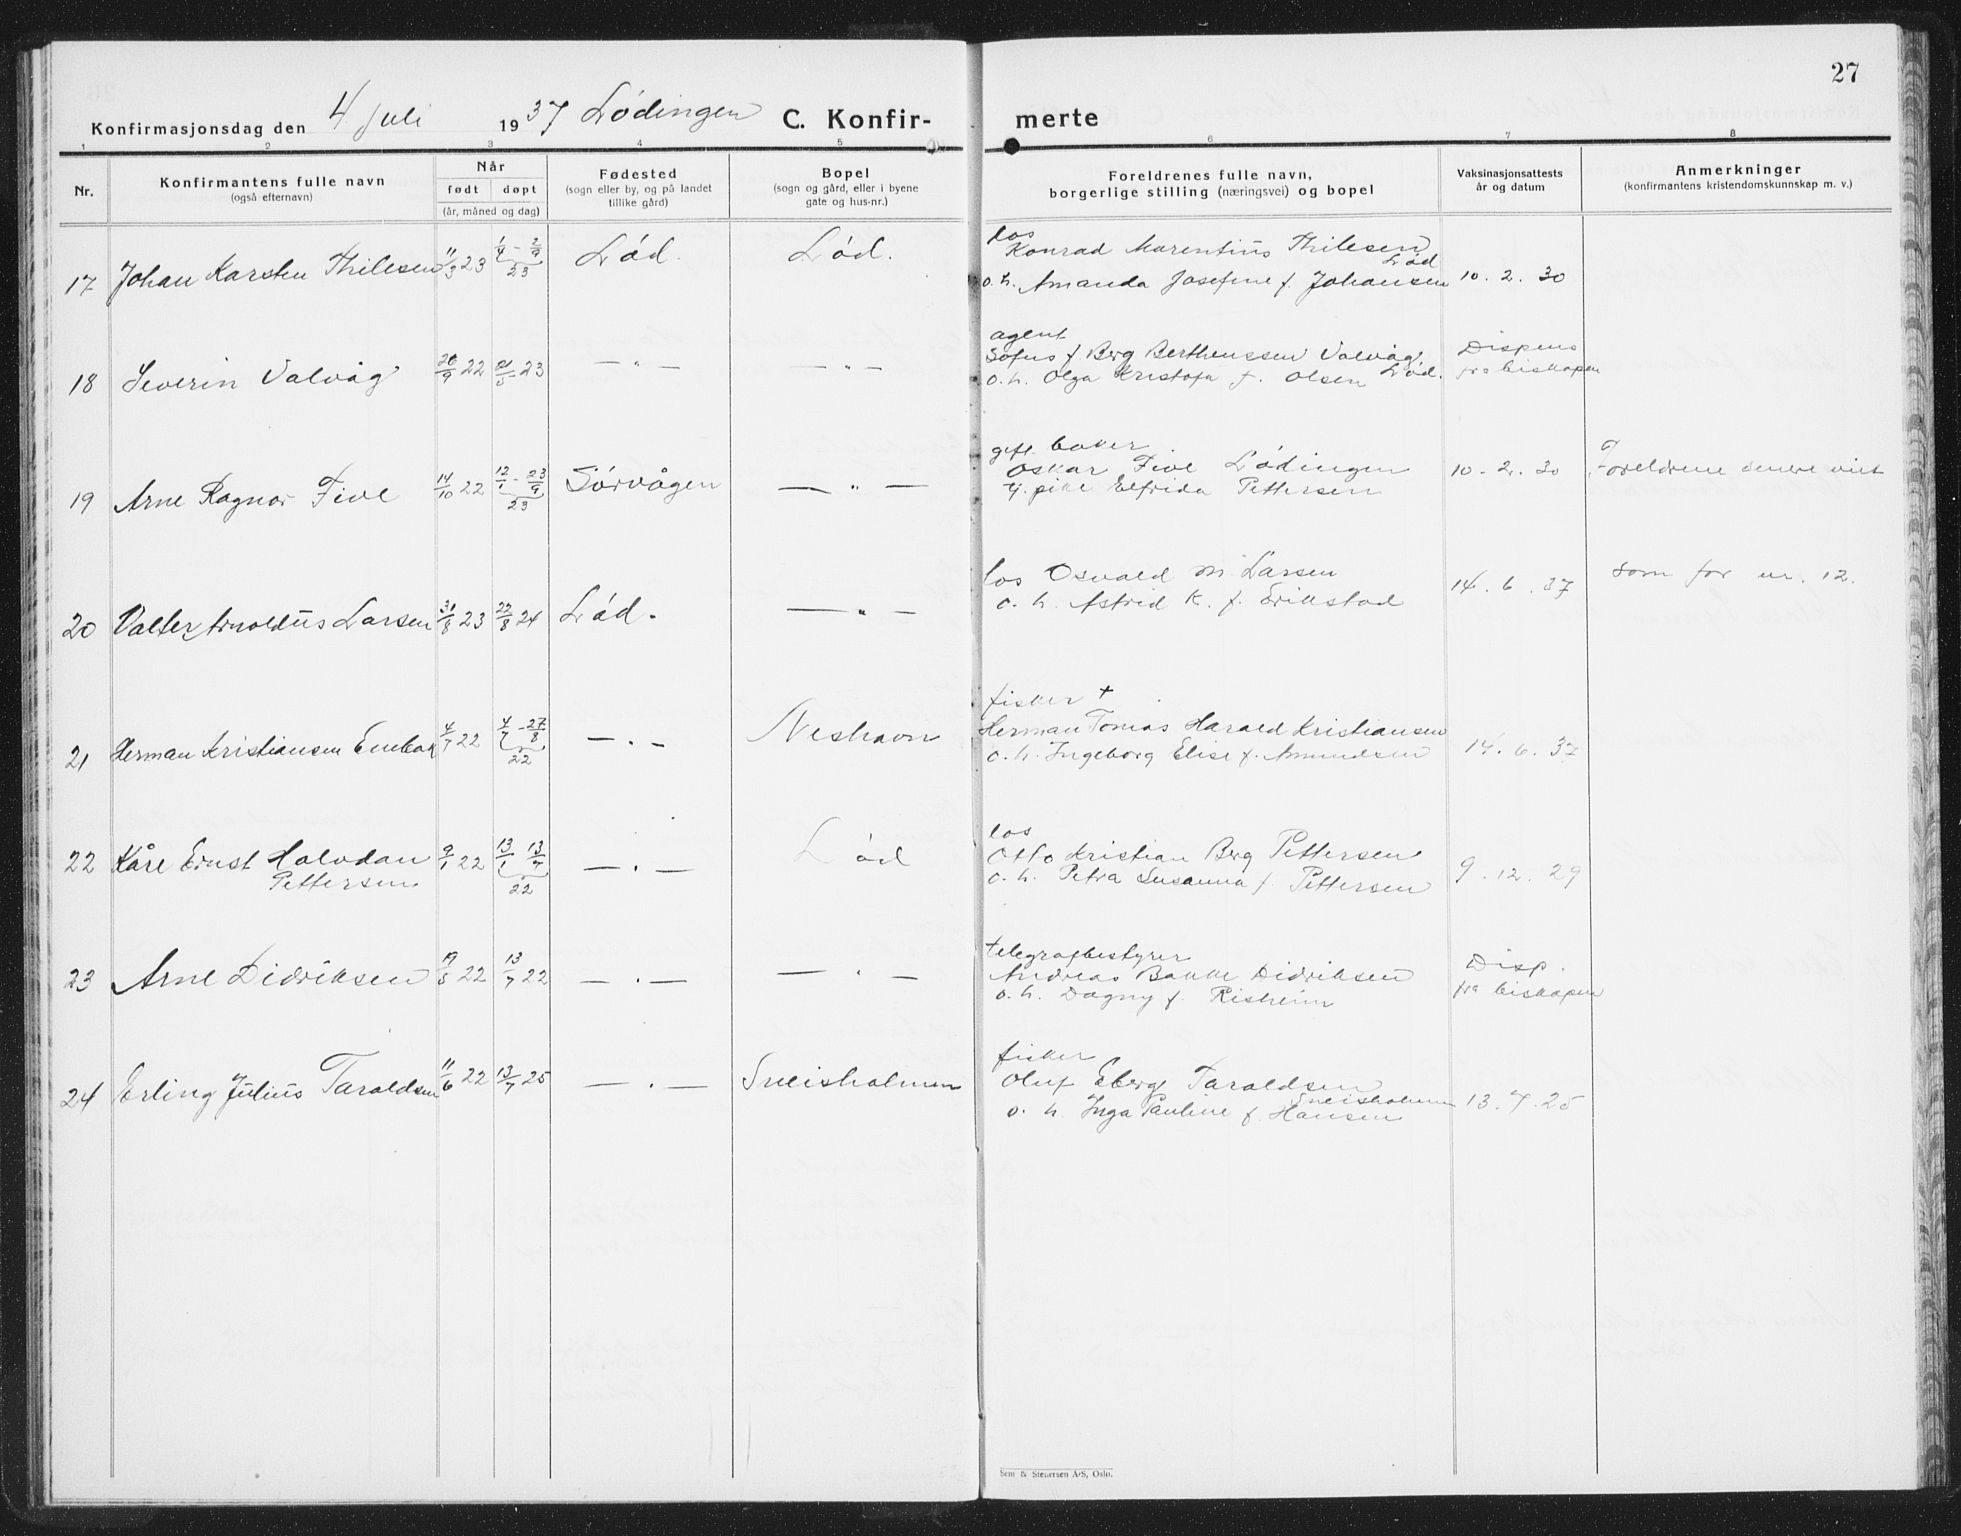 27
Konfirmasjonsdag den 4 Juli 1937 Lødingen C. Konfirmerte
1 2 3 4 5 6 7 8
Nr. Konfirmantens fulle navn (også efternavn) Når født døpt (år, måned og dag) Fødested (sogn eller by, og på landet tillike gård) Bopel (sogn og gård, eller i byene gate og hus-nr.) Foreldrenes fulle navn, borgerlige stilling (næringsvei) og bopel Vaksinasjonsattests år og datum Anmerkninger (konfirmantens kristendomskunnskap m. v.)
los
17 Johan Karsten Thilesen 11/3 23 1/4 - 2/9 23 Lød. Lød. Konrad Marentius Thilesen Lød
o. h. Amanda Josefine f. Johansen 10. 2. 30
agent
18 Severin Valvåg 22 23 — " — — " — Sofus f. Berg Berthenssen Valvåg, Lød.
o. h. Olga Kristofa f. Olsen Dispens fra biskopen
gift baker
19 Arne Ragnar Five 14/10 22 12/1 - 23/9 23 Sørvågen — " — Oskar Five Lødingen
pike Elfrida Pettersen 10. 2. 30 Foreldrene senere viet
20 Valter Arnoldus Larsen 31/8 23 22/8 24 Lød. — " — los Osvald M. Larsen
o. h. Astrid K. f. Erikstad 14. 6. 37 som for nr. 12.
fisker +
21 Herman Kristiansen Enebak 4/7 22 4/7 - 27/8 22 — " — Neshavn Herman Tomas Harald Kristiansen
o. h. Ingeborg Elise f. Amundsen 14. 6. 37
los
22 Kåre Ernst Halvdan Pettersen 9/1 22 13/1 13/7 22 — " — Lød Otto Kristian Berg Pettersen
o. h. Petra Susanna f. Pettersen 9. 12. 29
telegrafbestyrer
23 Arne Didriksen 19/5 22 13/7 22 — " — — " — Andreas Bakke Didriksen
o. h. Dagny f. Risheim Disp. fra biskopen
fisker
24 Erling Julius Taraldsen 11/6 22 13/7 25 — " — Sneisholmen Oluf Eberg Taraldsen Sneisholmen
o. h. Inga Pauline f. Hansen 13. 7. 25
Sem & Stenersen A/S, Oslo.